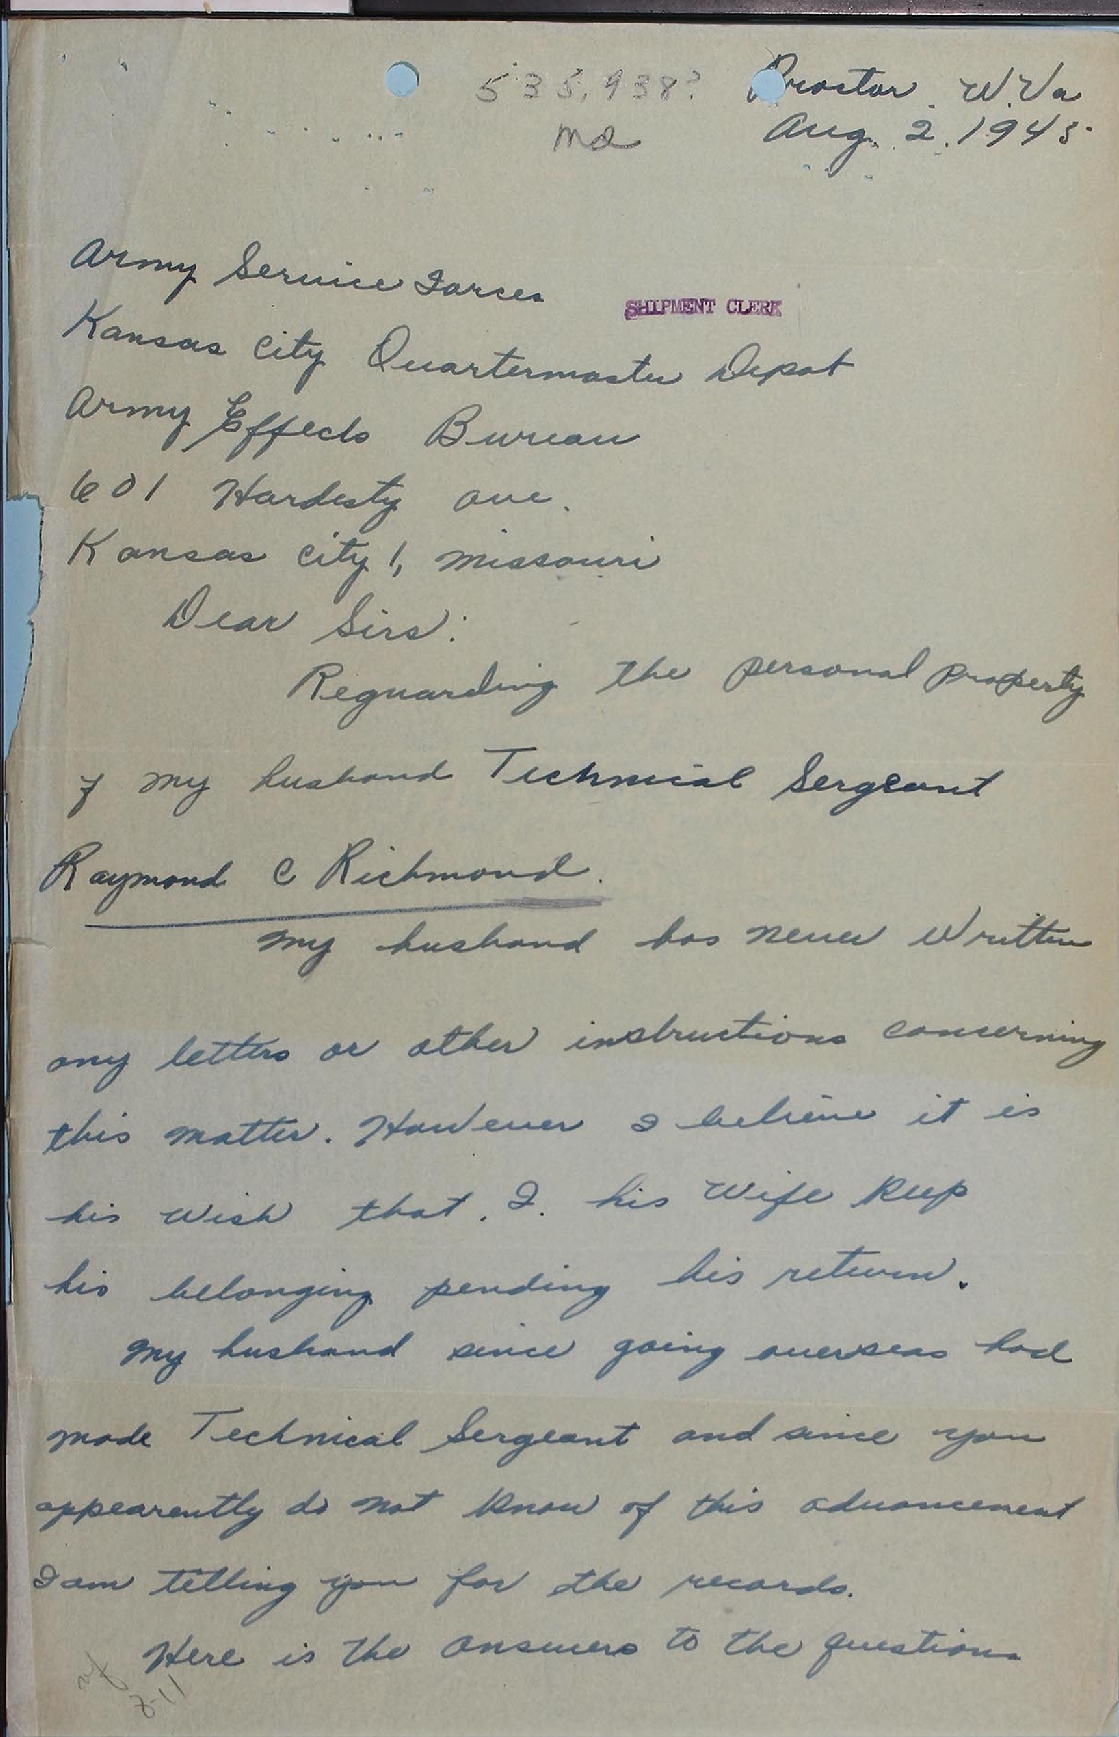 535,938?
Proctor W.Va
Aug. 2. 1945
Army Service Forces
SHIPMENT CLERK
Kansas City Quartermaster Depot
Army Effects Bureau
601 Hardesty ave.
Kansas City 1, Missouri
Dear Sirs:
Reguarding the personal property
of my husband Technical Sergeant
Raymond C Richmond.
My husband has never written
any letters or other instructions concerning
this matter. However I believe it is
his wish that. I. his wife keep
his belonging pending his return.
My husband since going overseas had
made Technical Sergeant and since you
appearently do not know of this advancement
I am telling you for the records.
Here is the answers to the questions
8-11